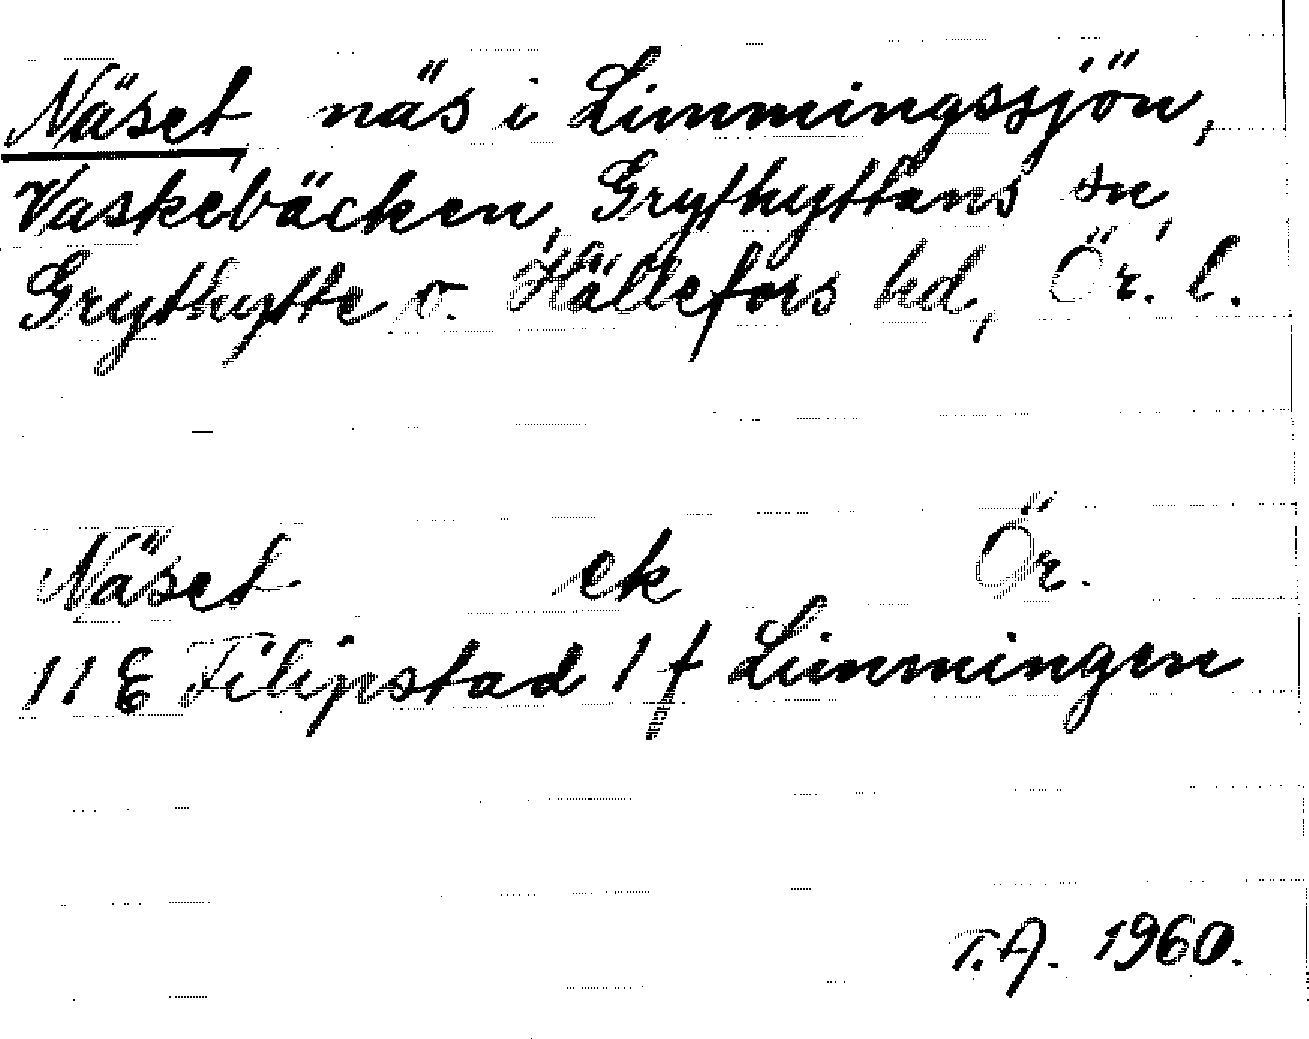 Näset näs i Limmingssjön,
Vaskebäcken, Grythyttans sn,
Grythytte o. Hällefors bd, Ör. l.
Näset ek Ör.
11 E Filipstad 1 f Limmingen
T.A. 1960.